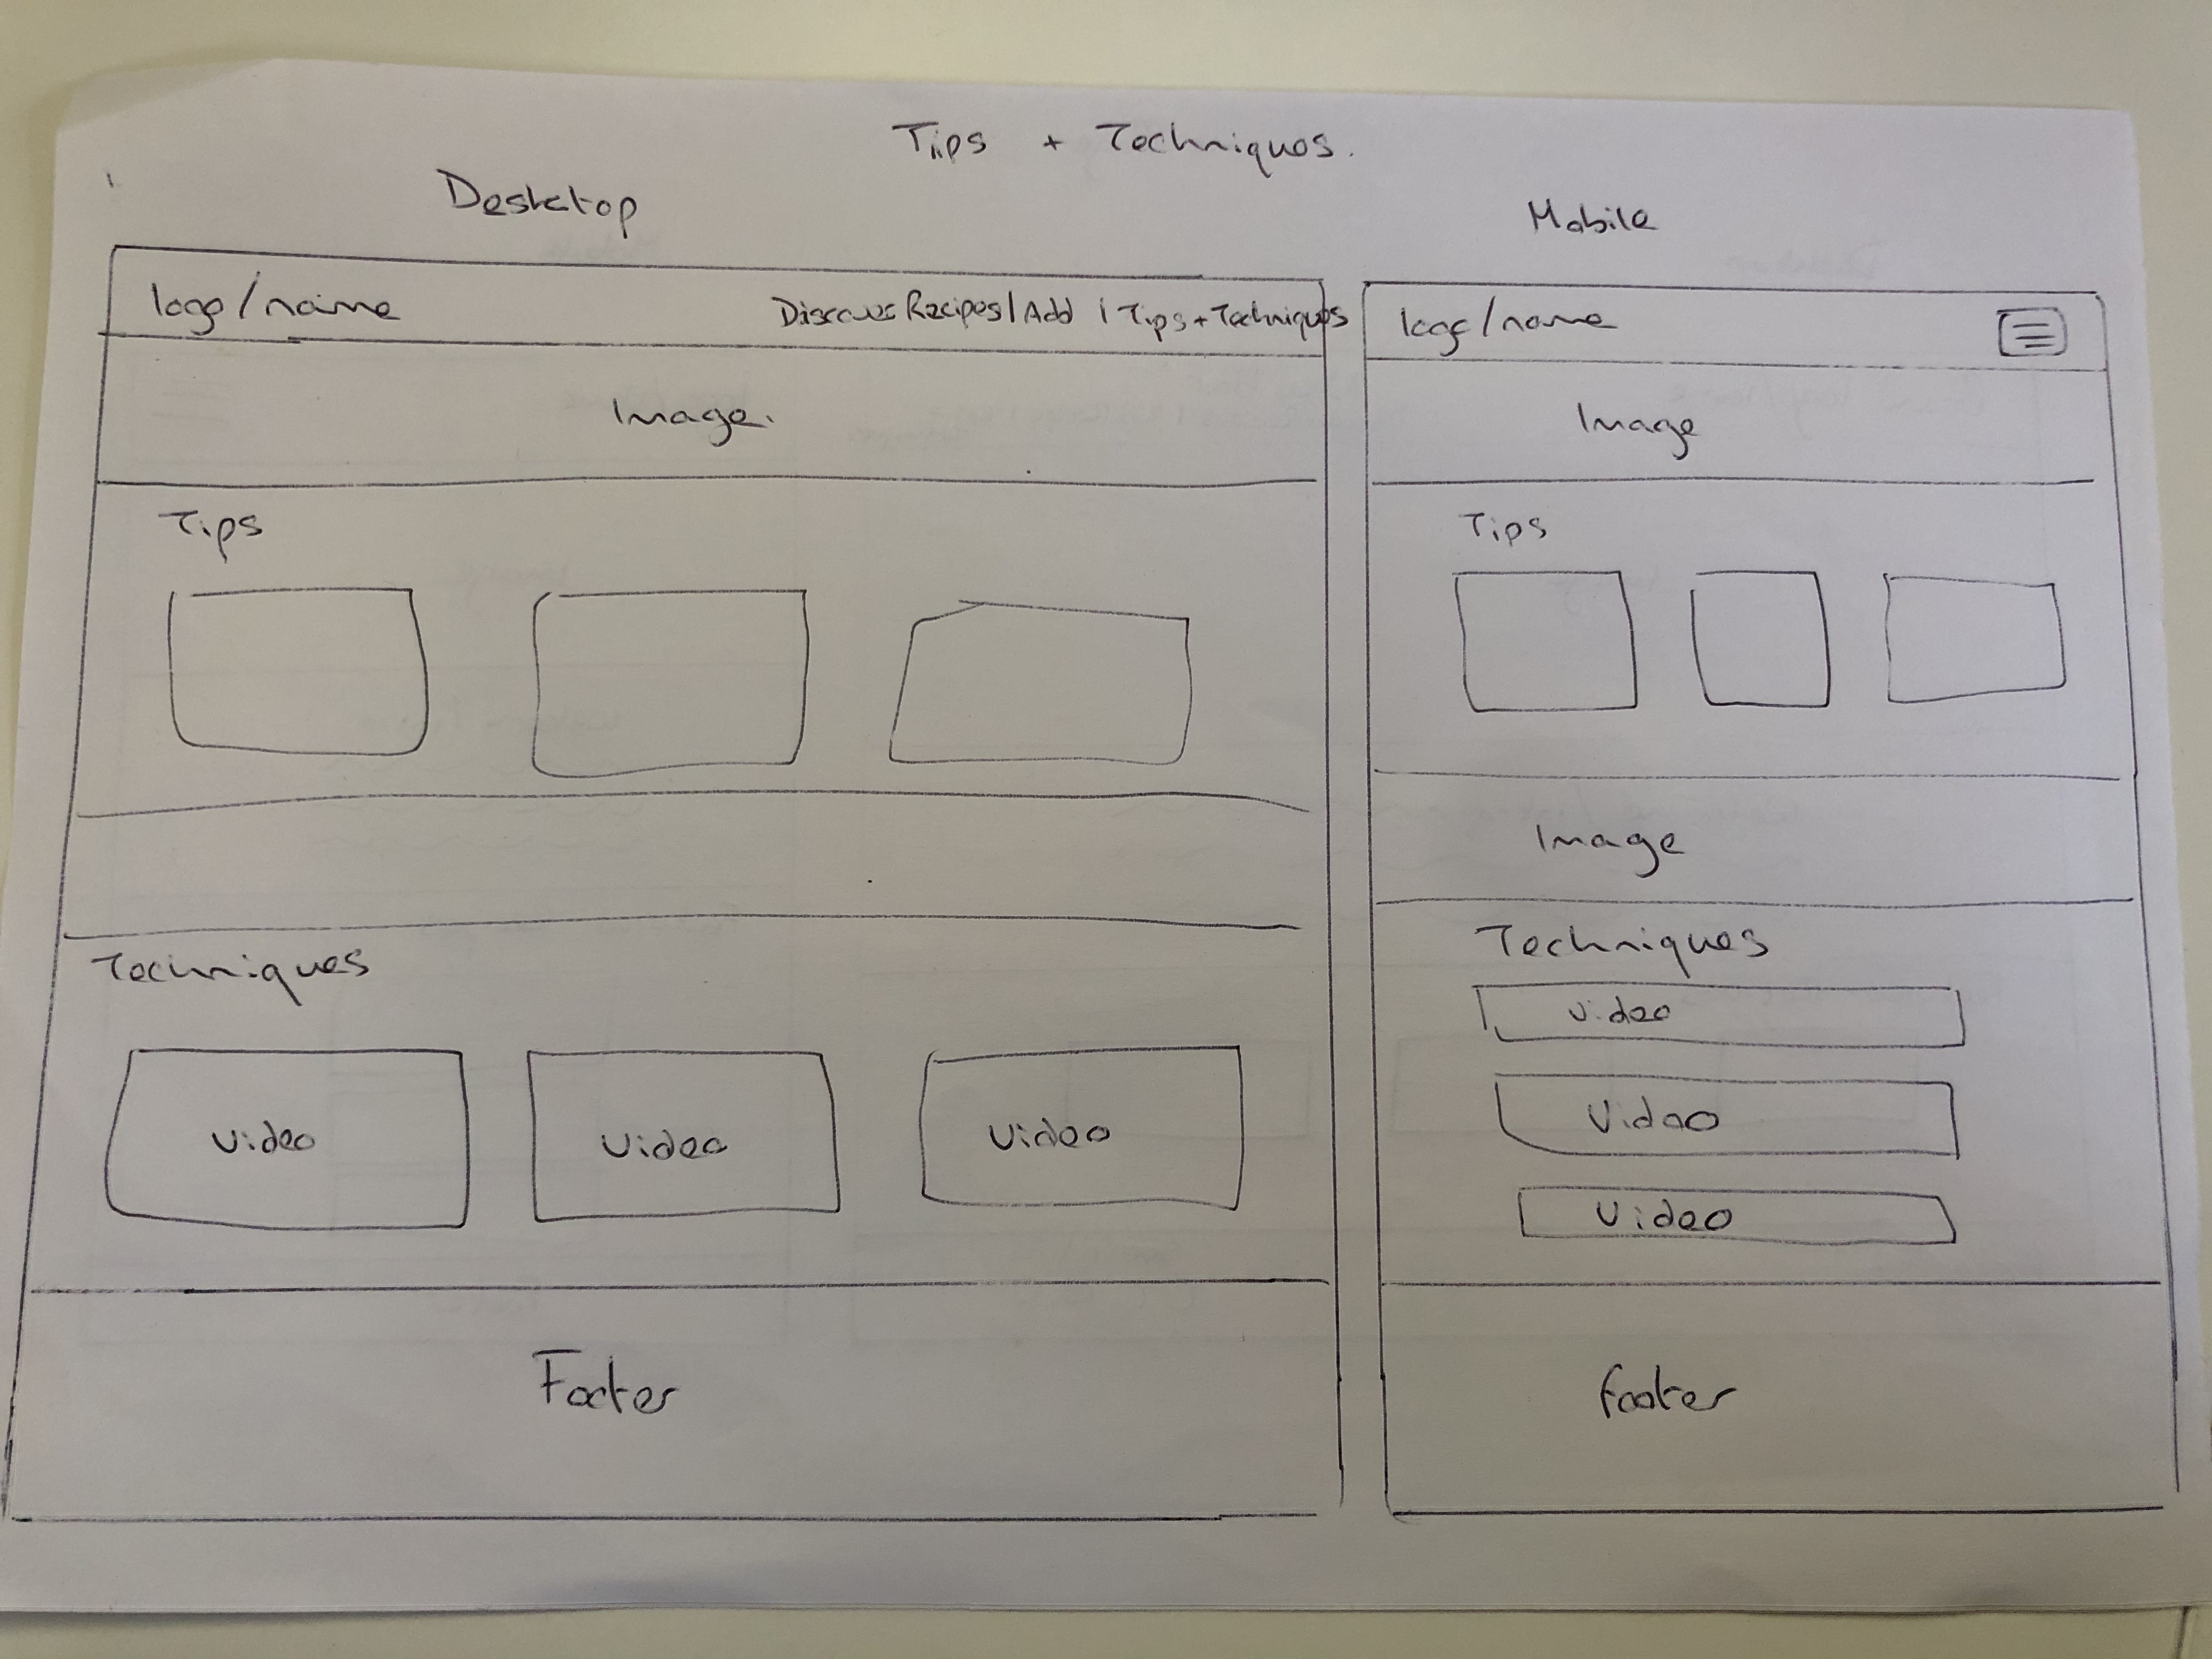 Tips + Techniques.
Desktop
logo/name
Discover Recipes | Add | Tips + Techniques
Image.
Tips
Techniques
Video
Video
Video
Footer
Mobile
logo/name
Image
Tips
Image
Techniques
Video
Video
Video
footer